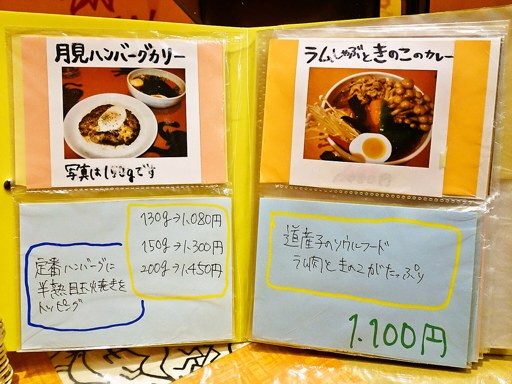 月見ハンバーグカリー
写真は150gです
130g→1.080円
150g→1.300円
200g→1.450円
定番ハンバーグに
半熟目玉焼きを
トッピング
ラムしゃぶときのこのカレー
道産子のソウルフード
ラム肉ときのこがたっぷり
1.100円